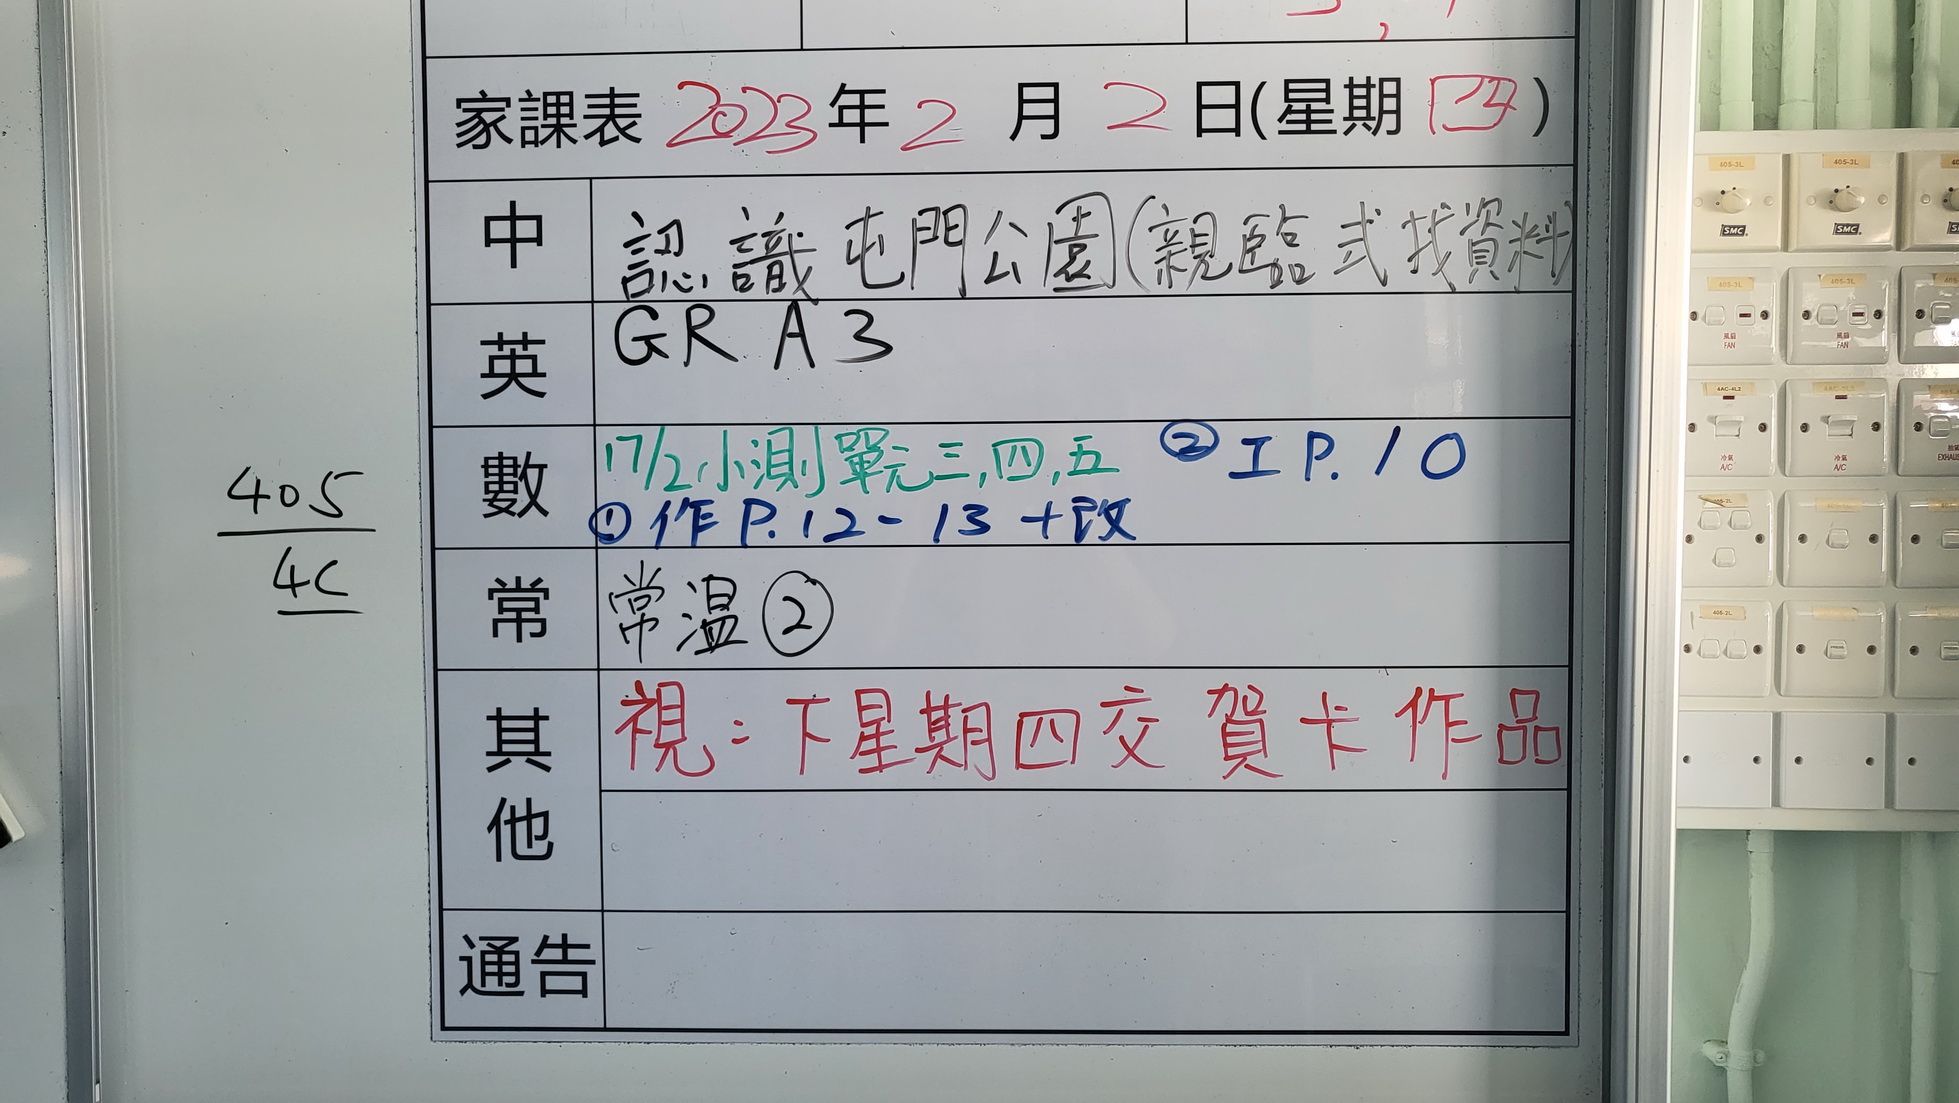 家課表 2023年2月2日(星期四)
中 認識屯門公園(親臨式找資料)
英 GR A3
數 17/2小測單元三,四,五 ② I P.10
①作P.12-13+改
常 常溫②
其他 視:下星期四交賀卡作品
通告
405
4C
405-3L 405-3L
SMC SMC
405-3L 405-3L
風扇 風扇
FAN FAN
4AC-4L2
冷氣 冷氣
A/C A/C
405-2L